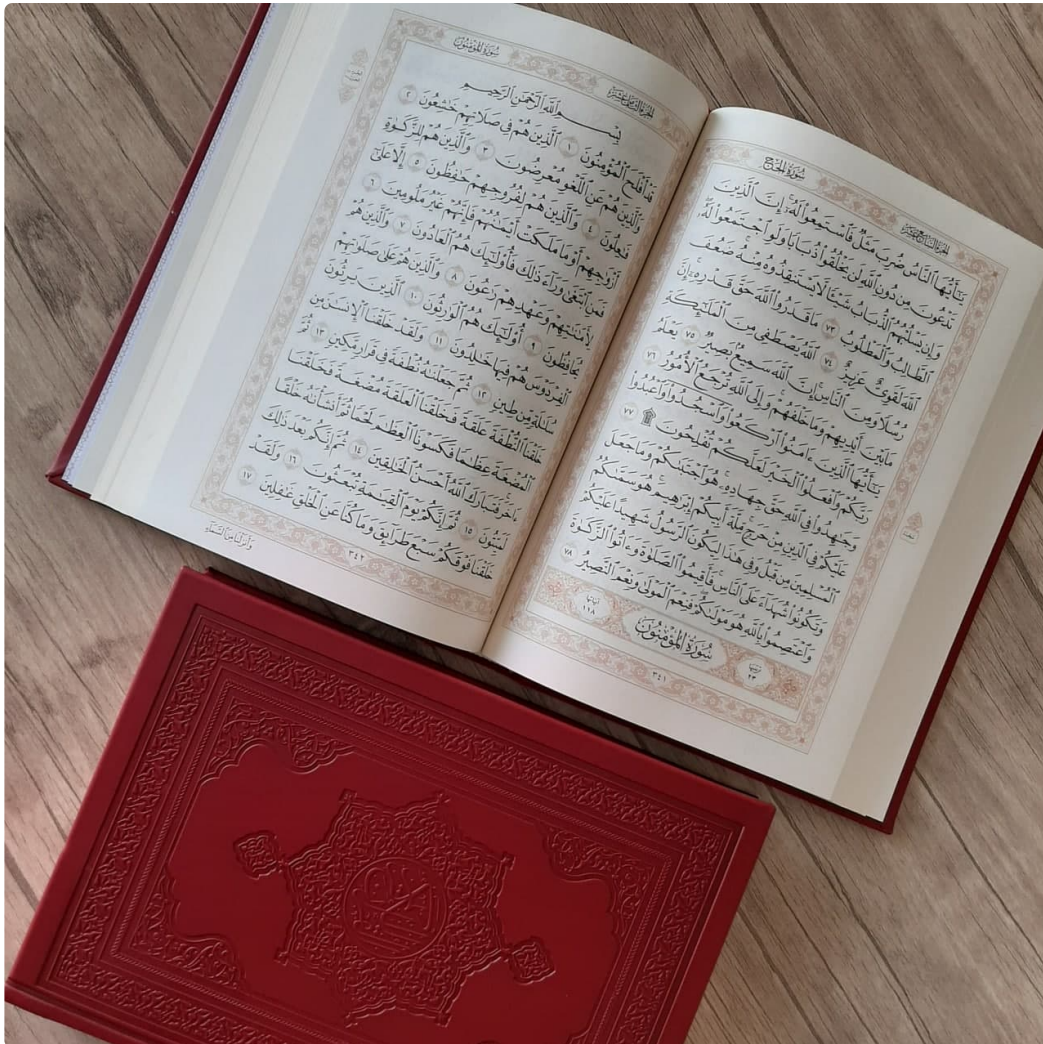 سُورَةُ الحَجِّ
الجُزْءُ السَّابِعَ عَشَرَ
يَٰٓأَيُّهَا ٱلنَّاسُ ضُرِبَ مَثَلٌ فَٱسْتَمِعُوا۟ لَهُۥٓ ۚ إِنَّ ٱلَّذِينَ
تَدْعُونَ مِن دُونِ ٱللَّهِ لَن يَخْلُقُوا۟ ذُبَابًا وَلَوِ ٱجْتَمَعُوا۟ لَهُۥ ۖ
وَإِن يَسْلُبْهُمُ ٱلذُّبَابُ شَيْـًٔا لَّا يَسْتَنقِذُوهُ مِنْهُ ۚ ضَعُفَ
ٱلطَّالِبُ وَٱلْمَطْلُوبُ ٧٣ مَا قَدَرُوا۟ ٱللَّهَ حَقَّ قَدْرِهِۦٓ ۗ إِنَّ
ٱللَّهَ لَقَوِىٌّ عَزِيزٌ ٧٤ ٱللَّهُ يَصْطَفِى مِنَ ٱلْمَلَٰٓئِكَةِ
رُسُلًا وَمِنَ ٱلنَّاسِ ۚ إِنَّ ٱللَّهَ سَمِيعٌۢ بَصِيرٌ ٧٥ يَعْلَمُ
مَا بَيْنَ أَيْدِيهِمْ وَمَا خَلْفَهُمْ ۗ وَإِلَى ٱللَّهِ تُرْجَعُ ٱلْأُمُورُ ٧٦
يَٰٓأَيُّهَا ٱلَّذِينَ ءَامَنُوا۟ ٱرْكَعُوا۟ وَٱسْجُدُوا۟ وَٱعْبُدُوا۟
رَبَّكُمْ وَٱفْعَلُوا۟ ٱلْخَيْرَ لَعَلَّكُمْ تُفْلِحُونَ ۩ ٧٧
وَجَٰهِدُوا۟ فِى ٱللَّهِ حَقَّ جِهَادِهِۦ ۚ هُوَ ٱجْتَبَىٰكُمْ وَمَا جَعَلَ
عَلَيْكُمْ فِى ٱلدِّينِ مِنْ حَرَجٍ ۚ مِّلَّةَ أَبِيكُمْ إِبْرَٰهِيمَ ۚ هُوَ سَمَّىٰكُمُ
ٱلْمُسْلِمِينَ مِن قَبْلُ وَفِى هَٰذَا لِيَكُونَ ٱلرَّسُولُ شَهِيدًا عَلَيْكُمْ
وَتَكُونُوا۟ شُهَدَآءَ عَلَى ٱلنَّاسِ ۚ فَأَقِيمُوا۟ ٱلصَّلَوٰةَ وَءَاتُوا۟ ٱلزَّكَوٰةَ
وَٱعْتَصِمُوا۟ بِٱللَّهِ هُوَ مَوْلَىٰكُمْ ۖ فَنِعْمَ ٱلْمَوْلَىٰ وَنِعْمَ ٱلنَّصِيرُ ٧٨
ترتيبها ٢٣ سُورَةُ المُؤْمِنُونَ آياتها ١١٨
٣٤١
سُورَةُ المُؤْمِنُونَ
الجُزْءُ الثَّامِنَ عَشَرَ
بِسْمِ ٱللَّهِ ٱلرَّحْمَٰنِ ٱلرَّحِيمِ
قَدْ أَفْلَحَ ٱلْمُؤْمِنُونَ ١ ٱلَّذِينَ هُمْ فِى صَلَاتِهِمْ خَٰشِعُونَ ٢
وَٱلَّذِينَ هُمْ عَنِ ٱللَّغْوِ مُعْرِضُونَ ٣ وَٱلَّذِينَ هُمْ لِلزَّكَوٰةِ
فَٰعِلُونَ ٤ وَٱلَّذِينَ هُمْ لِفُرُوجِهِمْ حَٰفِظُونَ ٥ إِلَّا عَلَىٰٓ
أَزْوَٰجِهِمْ أَوْ مَا مَلَكَتْ أَيْمَٰنُهُمْ فَإِنَّهُمْ غَيْرُ مَلُومِينَ ٦
فَمَنِ ٱبْتَغَىٰ وَرَآءَ ذَٰلِكَ فَأُو۟لَٰٓئِكَ هُمُ ٱلْعَادُونَ ٧ وَٱلَّذِينَ هُمْ
لِأَمَٰنَٰتِهِمْ وَعَهْدِهِمْ رَٰعُونَ ٨ وَٱلَّذِينَ هُمْ عَلَىٰ صَلَوَٰتِهِمْ
يُحَافِظُونَ ٩ أُو۟لَٰٓئِكَ هُمُ ٱلْوَٰرِثُونَ ١٠ ٱلَّذِينَ يَرِثُونَ
ٱلْفِرْدَوْسَ هُمْ فِيهَا خَٰلِدُونَ ١١ وَلَقَدْ خَلَقْنَا ٱلْإِنسَٰنَ مِن
سُلَٰلَةٍ مِّن طِينٍ ١٢ ثُمَّ جَعَلْنَٰهُ نُطْفَةً فِى قَرَارٍ مَّكِينٍ ١٣ ثُمَّ
خَلَقْنَا ٱلنُّطْفَةَ عَلَقَةً فَخَلَقْنَا ٱلْعَلَقَةَ مُضْغَةً فَخَلَقْنَا
ٱلْمُضْغَةَ عِظَٰمًا فَكَسَوْنَا ٱلْعِظَٰمَ لَحْمًا ثُمَّ أَنشَأْنَٰهُ خَلْقًا
ءَاخَرَ ۚ فَتَبَارَكَ ٱللَّهُ أَحْسَنُ ٱلْخَٰلِقِينَ ١٤ ثُمَّ إِنَّكُم بَعْدَ ذَٰلِكَ
لَمَيِّتُونَ ١٥ ثُمَّ إِنَّكُمْ يَوْمَ ٱلْقِيَٰمَةِ تُبْعَثُونَ ١٦ وَلَقَدْ
خَلَقْنَا فَوْقَكُمْ سَبْعَ طَرَآئِقَ وَمَا كُنَّا عَنِ ٱلْخَلْقِ غَٰفِلِينَ ١٧
٣٤٢
وَأَنزَلْنَا مِنَ ٱلسَّمَآءِ